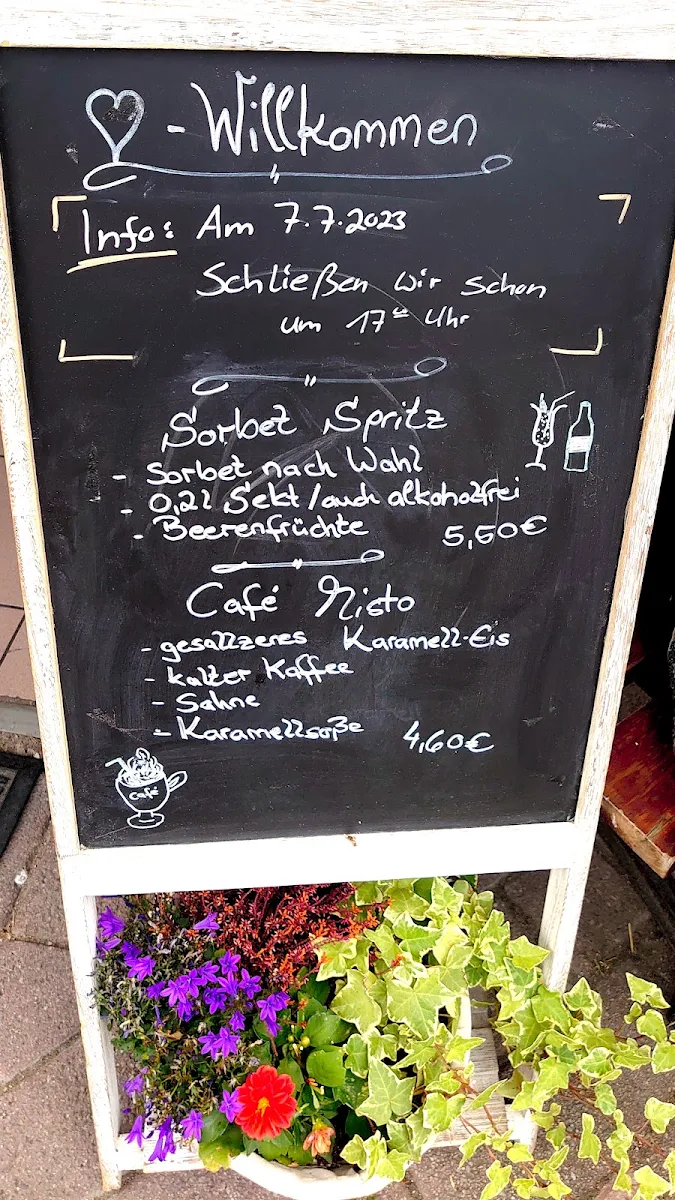 - Willkommen
Info: Am 7.7.2023
Schließen wir schon
um 17 Uhr
Sorbet Spritz
- Sorbet nach Wahl
- 0,2l Sekt / auch alkoholfrei
- Beerenfrüchte 5,50€
Café Misto
- gesallzeres Karamell-Eis
- kalter Kaffee
- Sahne
- Karamellsoße 4,60€
Café